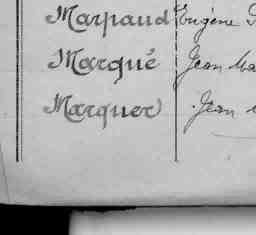 Marpaud Eugène
Marqué Jean
Marquer Jean